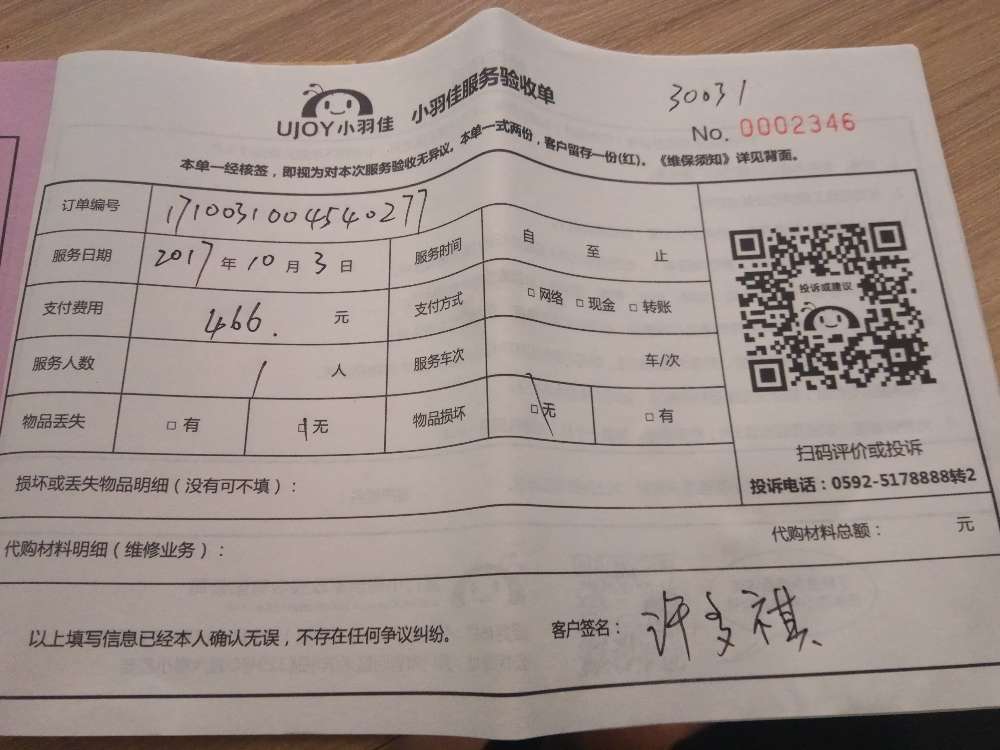 30031
UJOY小羽佳 小羽佳服务验收单
No. 0002346
本单一经核签，即视为对本次服务验收无异议。本单一式两份，客户留存一份(红)。《维保须知》详见背面。
订单编号 1710031004540277
服务日期 2017年10月3日 服务时间 自 至 止
支付费用 466. 元 支付方式 □网络 □现金 □转账
投诉或建议
服务人数 1 人 服务车次 车/次
物品丢失 □有 □无 物品损坏 □无 □有
扫码评价或投诉
投诉电话：0592-5178888转2
损坏或丢失物品明细（没有可不填）：
代购材料明细（维修业务）： 代购材料总额： 元
以上填写信息已经本人确认无误，不存在任何争议纠纷。 客户签名：许多祺